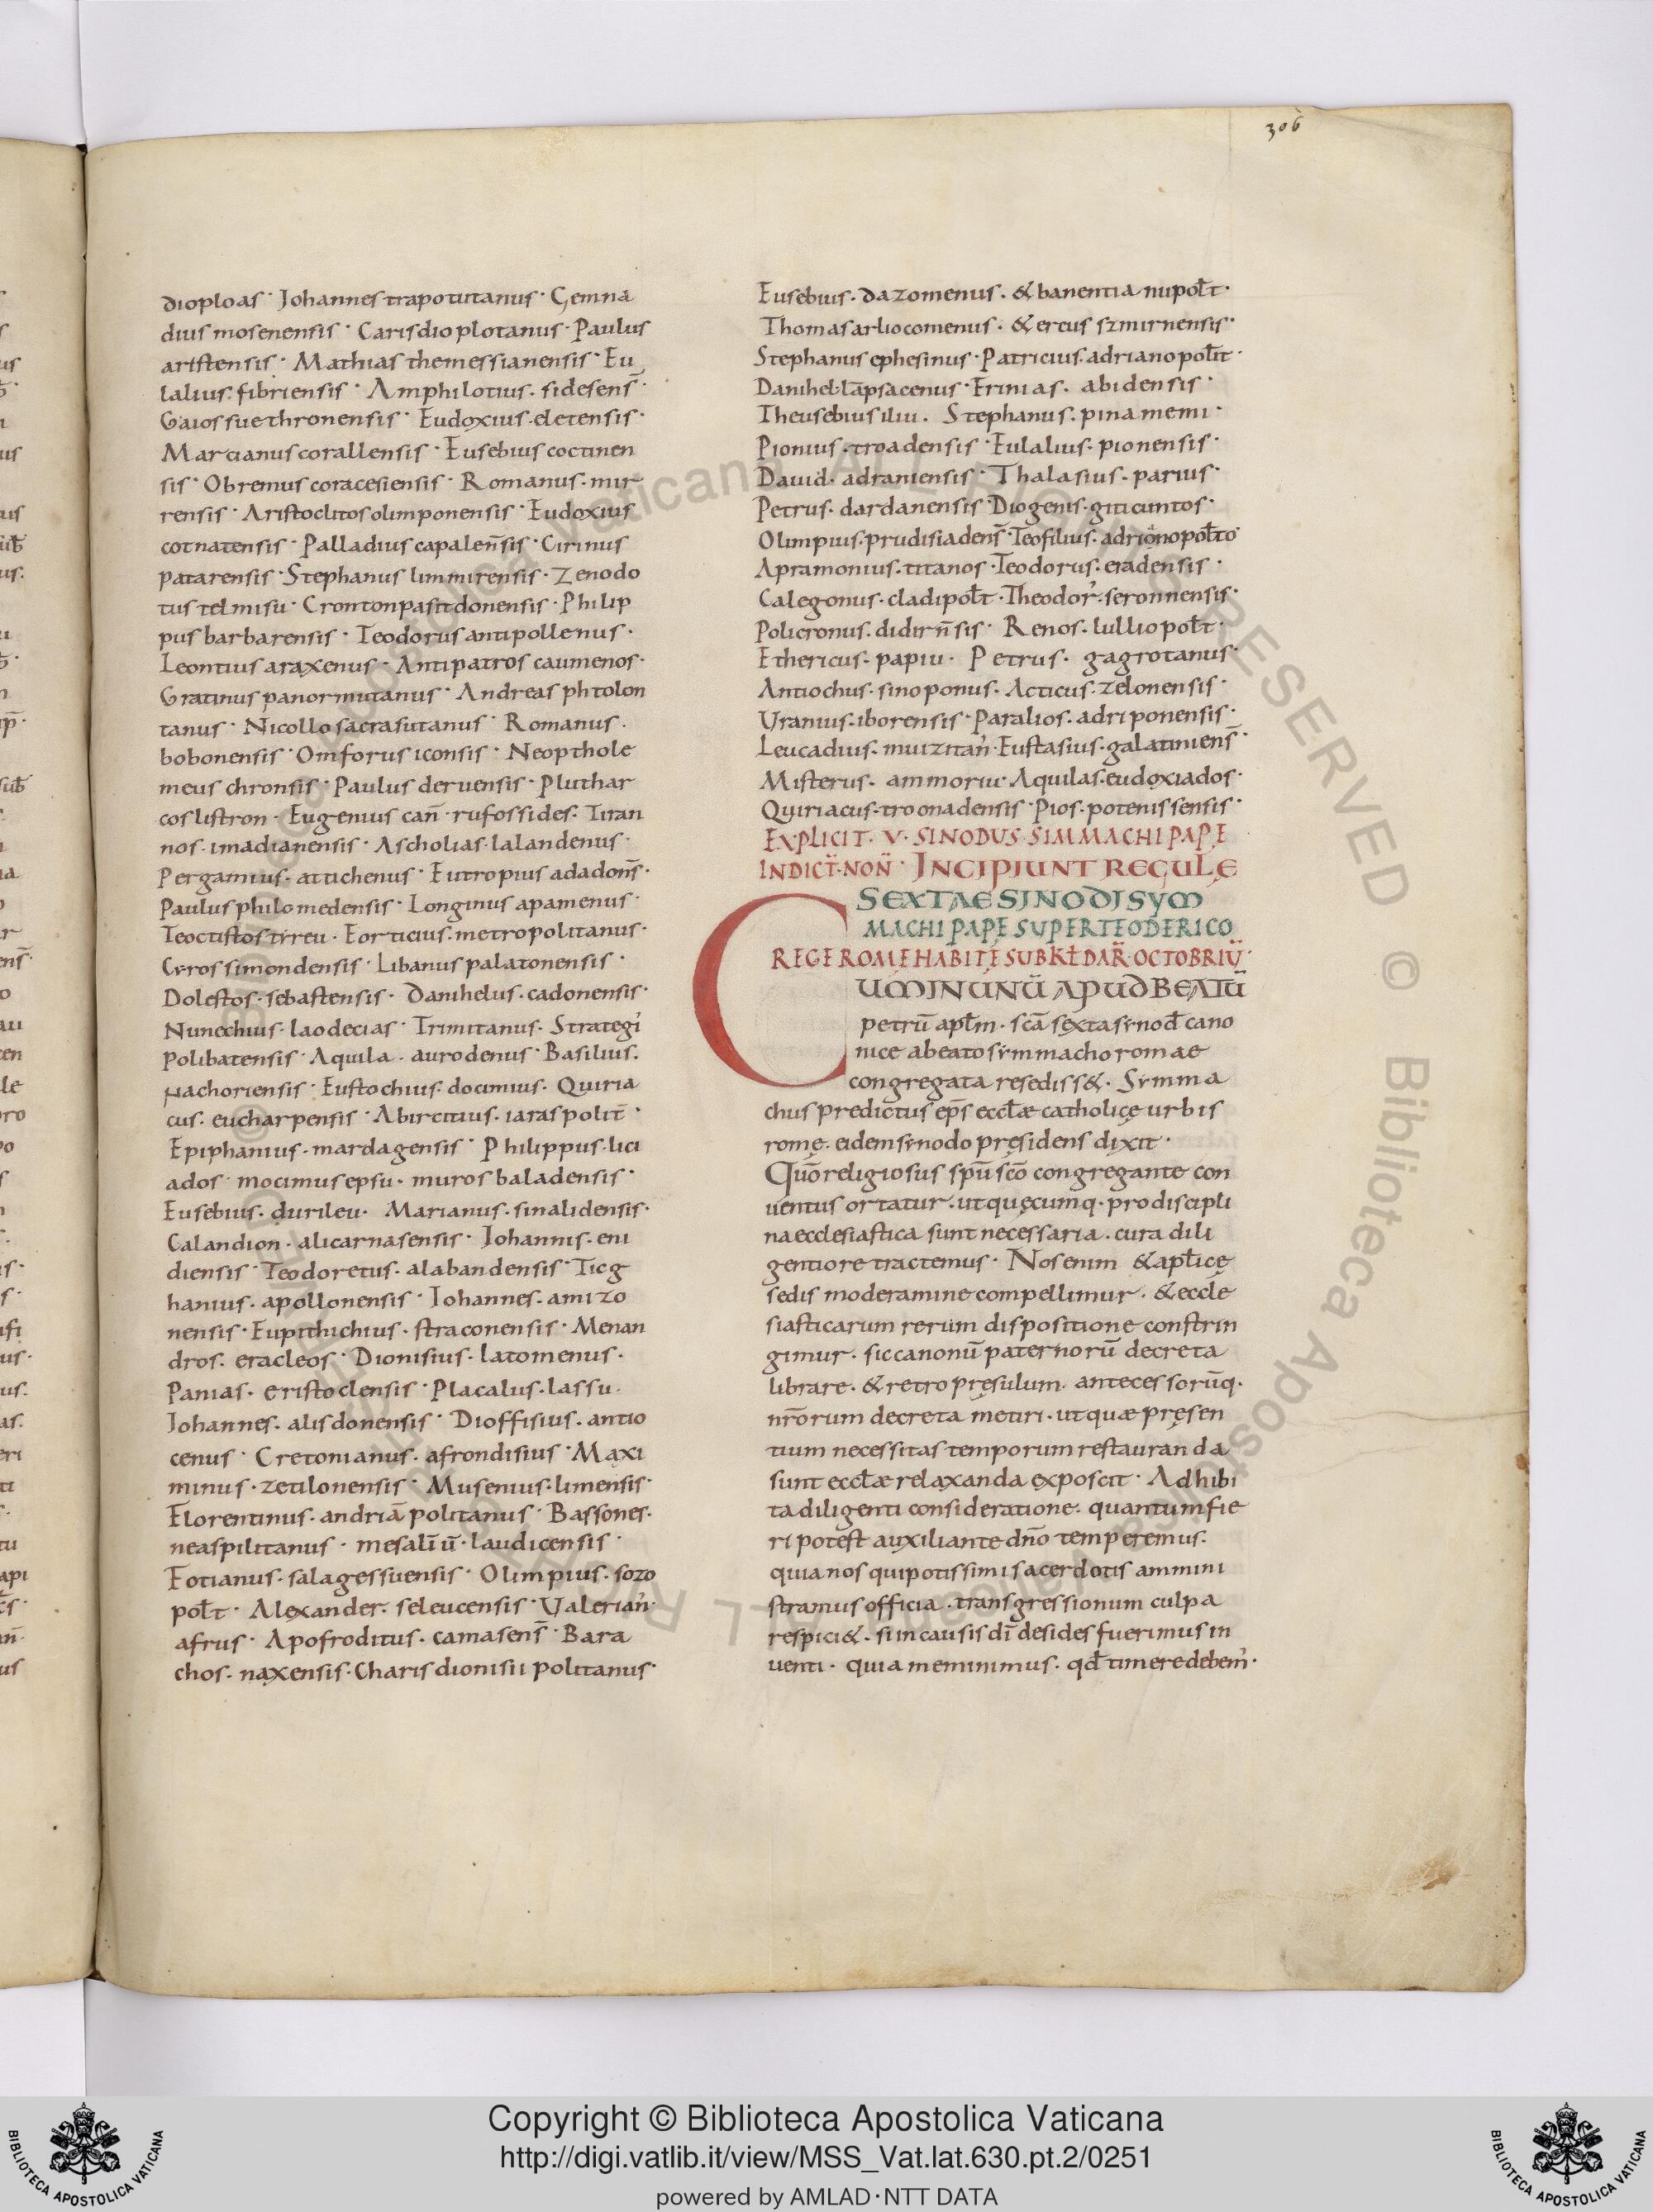 306
dioploas · Johannes trapotutanus · Gemna
dius mosenensis · Carisdioplotanus · Paulus
aristensis · Mathias themessianensis · Eu
lalius. fibriensis · Amphilotius. sidesens̄ ·
Gaios suethronensis · Eudoxius. eletensis ·
Marcianus corallensis · Eusebius coctinen
sis · Obremus coracesiensis · Romanus. mir
rensis · Aristoclitos olimponensis · Eudoxius
cotnatensis · Palladius capalen̄sis · Cirinus
patarensis · Stephanus limmirensis · Zenodo
tus telmisu · Crontonpasitdonensis · Philip
pus barbarensis · Teodorus antipollenus ·
Leontius araxenus · Antipatros caumenos ·
Gratinus panormutanus · Andreas phtolon
tanus · Nicollo sacrasutanus · Romanus.
bobonensis · Omforus iconsis · Neopthole
meus chronsis · Paulus deruensis · Pluthar
cos listron · Eugenius can̄ · rufossides. Tiran
nos. imadianensis · Ascholias. lalandenus ·
Pergamius. attichenus · Eutropius adadons̄ ·
Paulus philomedensis · Longinus apamenus ·
Teoctistos tyreu · Eorticius. metropolitanus ·
Cyros simondensis · Libanus palatonensis ·
Dolestos. sebastensis · Danihelus. cadonensis ·
Nunechius. laodecias · Trimitanus. Strategi'
polibatensis · Aquila. aurodenus · Basilius.
nachoriensis · Eustochius. docimius. Quiria
cus. eucharpensis · Abircitius. iaraspolit̄ ·
Epiphanius. mardagensis · Philippus. lici
ados · mocimus epsu. muros baladensis ·
Eusebius. durileu. Marianus. sinalidensis ·
Calandion. alicarnasensis · Johannis. eni
diensis · Teodoretus. alabandensis · Ticg
hanius. apollonensis · Johannes. amizo
nensis · Eupithichius. straconensis · Menan
dros. eracleos · Dionisius. latomenus.
Panias. eristoclensis · Placalus. lassu.
Johannes. alisdonensis · Dioffisius. antio
cenus · Cretonianus. afrondisius · Maxi
minus. zetilonensis · Musenius. limensis ·
Florentinus. andriā politanus · Bassones.
neaspilitanus · mesalīū · laudicensis ·
Fotianus. salagessuensis · Olimpius. sozo
polt̄ · Alexander. seleucensis · Valerian'
afrus · Apofroditus. camasens̄ · Bara
chos. naxensis · Charisdionisii politanus ·
Eusebius. dazomenus. & banentia nupolt̄ ·
Thomasarliocomenus. & ereus szmirnensis ·
Stephanus ephesinus · Patricius. adrianopolit̄ ·
Danihel. lāpsacenus · Erinias. abidensis ·
Theusebius iliu. Stephanus. pinamemi ·
Pionius. troadensis · Eulalius. pionensis ·
Dauid. adraniensis · Thalasius. parius ·
Petrus. dardanensis · Diogenis. giticuntos ·
Olimpius. prudisiadens̄ · Teofilius. adrionopolto ·
Apramonius. titanos · Teodorus. eradensis ·
Calegonus. cladipolt̄ · Theodor'. seronnensis ·
Policronus. didirn̄sis · Renos. lulliopolt̄ ·
Ethericus. papiu. Petrus. gagrotanus ·
Antiochus. sinoponus. Acticus. zelonensis ·
Vranius. iborensis · Paralios. adriponensis ·
Leucadius. muizitan' · Eustasius. galatiniens̄ ·
Misterus. ammoriu · Aquilas. eudoxiados ·
Quiriacus. troonadensis · Pios. potenissensis ·
EXPLICIT · V · SINODUS SIMMACHI PAPE
INDICT̄ · NON̄ · INCIPIUNT REGULE
SEXTAE SINODI SYM
MACHI PAPE SUPER TEODERICO
REGE ROME HABITE SUB KL̄ DAR̄ · OCTOBRIŪ ·
CUM IN UNŪ APUD BEATŪ
petrū apl̄m · scā sexta synod̄ cano
nice a beato symmacho romae
congregata resediss& · Symma
chus predictus ep̄s eccl̄æ catholicę urbis
romę. eidem synodo pręsidens dixit ·
Quō religiosus sp̄u scō congregante con
uentus ortatur. ut quęcumq. pro discipli
na ecclesiastica sunt necessaria. cura dili
gentiore tractemus · Nos enim & apl̄icę
sedis moderamine compellimur. & eccle
siasticarum rerum dispositione constrin
gimur. sic canonū paternorū decreta
librare. & retro pręsulum antecessorūq.
nr̄orum decreta metiri. ut quæ pręsen
tium necessitas temporum restauranda
sunt eccl̄æ relaxanda exposcit · Adhibi
ta diligenti consideratione. quantum fie
ri potest auxiliante dn̄o temperemus.
quia nos qui potissimi sacerdotis ammini
stramus officia. transgressionum culpa
respici&. si in causis dī desides fuerimus in
uenti. quia meminimus. qd̄ timere debem' ·
Copyright © Biblioteca Apostolica Vaticana
http://digi.vatlib.it/view/MSS_Vat.lat.630.pt.2/0251
powered by AMLAD·NTT DATA
BIBLIOTECA APOSTOLICA VATICANA
BIBLIOTECA APOSTOLICA VATICANA